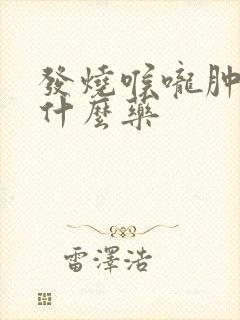 發燒喉嚨肿
什麼藥
雷澤浩